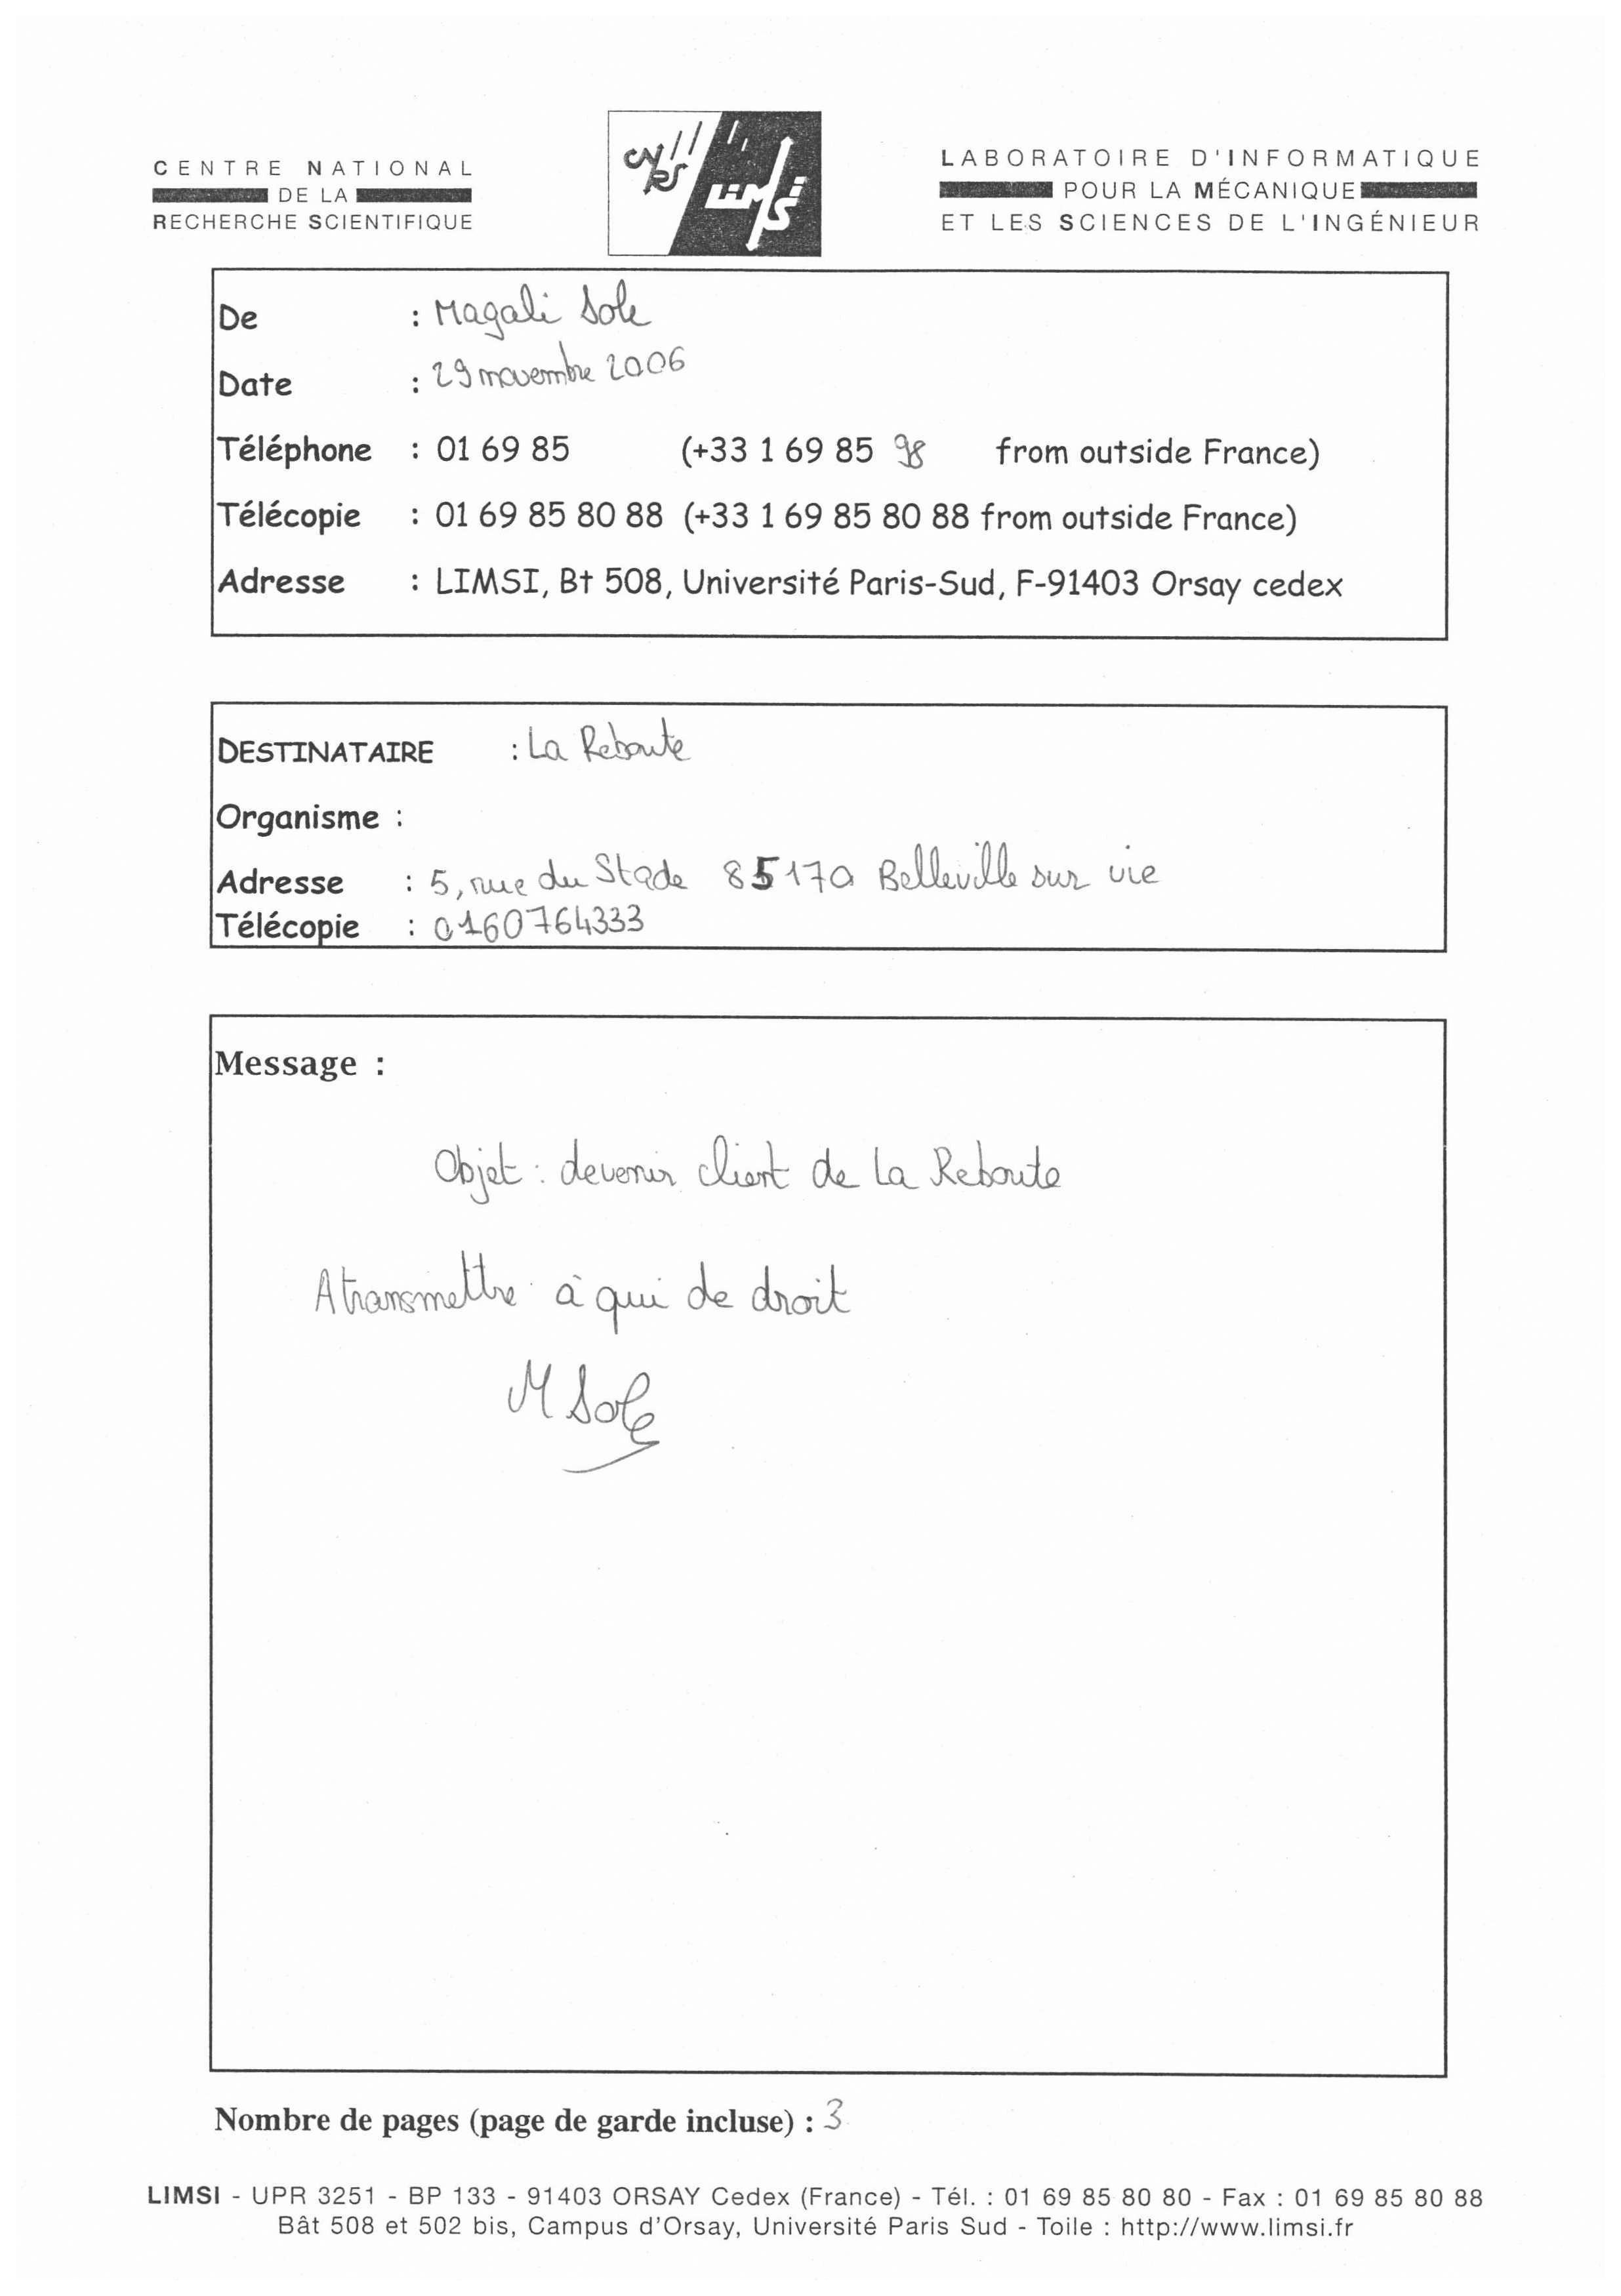 CENTRE NATIONAL
DE LA
RECHERCHE SCIENTIFIQUE
cnrs
LIMSI
LABORATOIRE D'INFORMATIQUE
POUR LA MÉCANIQUE
ET LES SCIENCES DE L'INGÉNIEUR
De : Magali Sole
Date : 29 novembre 2006
Téléphone : 01 69 85 (+33 1 69 85 98 from outside France)
Télécopie : 01 69 85 80 88 (+33 1 69 85 80 88 from outside France)
Adresse : LIMSI, Bt 508, Université Paris-Sud, F-91403 Orsay cedex
DESTINATAIRE : La Reboute
Organisme :
Adresse : 5, rue du Stade 85170 Belleville sur vie
Télécopie : 0160764333
Message :
Objet : devenir client de La Reboute
A transmettre à qui de droit
M Sole
Nombre de pages (page de garde incluse) : 3
LIMSI - UPR 3251 - BP 133 - 91403 ORSAY Cedex (France) - Tél. : 01 69 85 80 80 - Fax : 01 69 85 80 88
Bât 508 et 502 bis, Campus d'Orsay, Université Paris Sud - Toile : http://www.limsi.fr